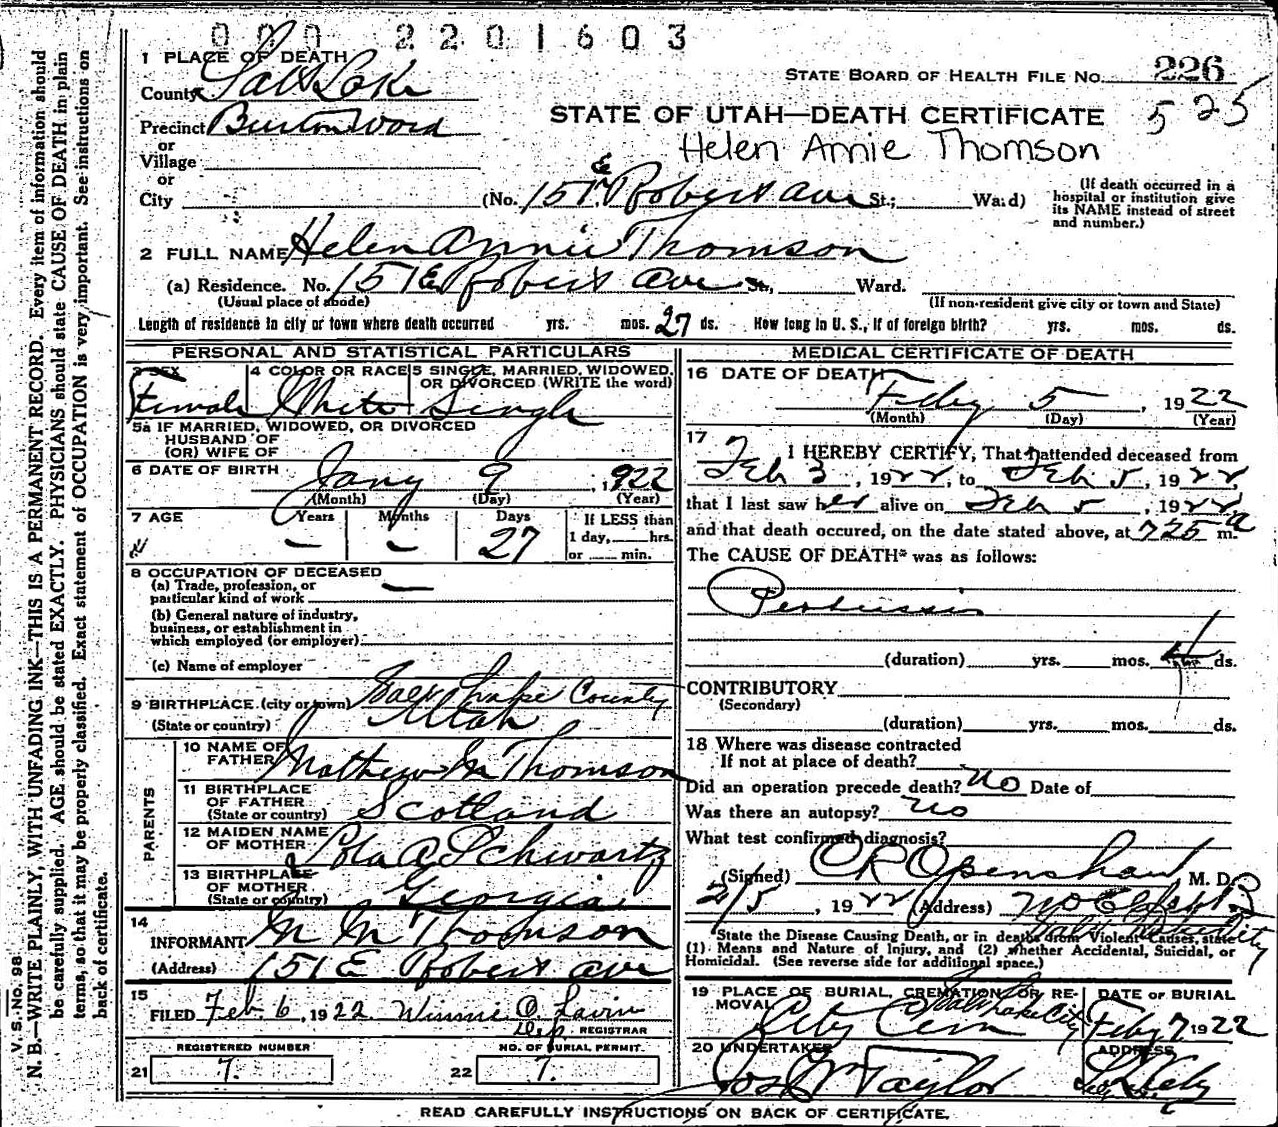 000 2201603
1 PLACE OF DEATH
County Salt Lake
STATE BOARD OF HEALTH FILE NO. 226
525
STATE OF UTAH—DEATH CERTIFICATE
Precinct Burton Word
or
Village
or
City
Helen Annie Thomson
(No. 151 E Robert ave St.; Ward)
(If death occurred in a hospital or institution give its NAME instead of street and number.)
2 FULL NAME Helen Annie Thomson
(a) Residence. No. 151 E Robert ave St., Ward.
(Usual place of abode)
(If non-resident give city or town and State)
Length of residence in city or town where death occurred yrs. mos. 27 ds. How long in U. S., if of foreign birth? yrs. mos. ds.
PERSONAL AND STATISTICAL PARTICULARS
3 SEX
Female
4 COLOR OR RACE
White
5 SINGLE, MARRIED, WIDOWED, OR DIVORCED (WRITE the word)
Single
5a IF MARRIED, WIDOWED, OR DIVORCED
HUSBAND OF
(OR) WIFE OF
6 DATE OF BIRTH
Jany 9, 1922
(Month) (Day) (Year)
7 AGE
Years Months Days
— — 27
If LESS than
1 day, hrs.
or min.
8 OCCUPATION OF DECEASED
(a) Trade, profession, or
particular kind of work —
(b) General nature of industry,
business, or establishment in
which employed (or employer)
(c) Name of employer
9 BIRTHPLACE (city or town) Salt Lake County
(State or country) Utah
PARENTS
10 NAME OF
FATHER Mathew M Thomson
11 BIRTHPLACE
OF FATHER
(State or country) Scotland
12 MAIDEN NAME
OF MOTHER Lola A Schwartz
13 BIRTHPLACE
OF MOTHER
(State or country) Georgia
14
INFORMANT M M Thomson
(Address) 151 E Robert ave
15
FILED Feb 6, 1922 Winnie O. Lavin
Dep REGISTRAR
REGISTERED NUMBER
21 7.
NO. OF BURIAL PERMIT.
22 7.
MEDICAL CERTIFICATE OF DEATH
16 DATE OF DEATH
Feby 5, 1922
(Month) (Day) (Year)
17
I HEREBY CERTIFY, That I attended deceased from
Feb 3, 1922, to Feb 5, 1922,
that I last saw her alive on Feb 5, 1922
and that death occured, on the date stated above, at 725 a m.
The CAUSE OF DEATH* was as follows:
Pertussis
(duration) yrs. mos. ds.
CONTRIBUTORY
(Secondary)
(duration) yrs. mos. ds.
18 Where was disease contracted
If not at place of death?
Did an operation precede death? no Date of
Was there an autopsy? no
What test confirmed diagnosis?
(Signed) C R Openshaw M. D.
2/5, 1922 (Address)
Salt Lake City
*State the Disease Causing Death, or in deaths from Violent Causes, state
(1) Means and Nature of Injury, and (2) whether Accidental, Suicidal, or
Homicidal. (See reverse side for additional space.)
19 PLACE OF BURIAL, CREMATION OR RE-
MOVAL
Salt Lake City
City Cem
DATE OF BURIAL
Feby 7 1922
20 UNDERTAKER
Jos Wm Taylor
ADDRESS
V. S. No. 98
N. B.—WRITE PLAINLY, WITH UNFADING INK—THIS IS A PERMANENT RECORD. Every item of information should
be carefully supplied. AGE should be stated EXACTLY. PHYSICIANS should state CAUSE OF DEATH in plain
terms, so that it may be properly classified. Exact statement of OCCUPATION is very important. See instructions on
back of certificate.
READ CAREFULLY INSTRUCTIONS ON BACK OF CERTIFICATE.